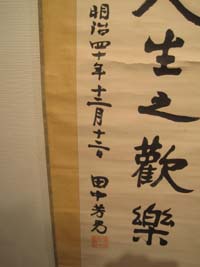 人生之歡樂
明治四十年十二月十二日 田中芳男